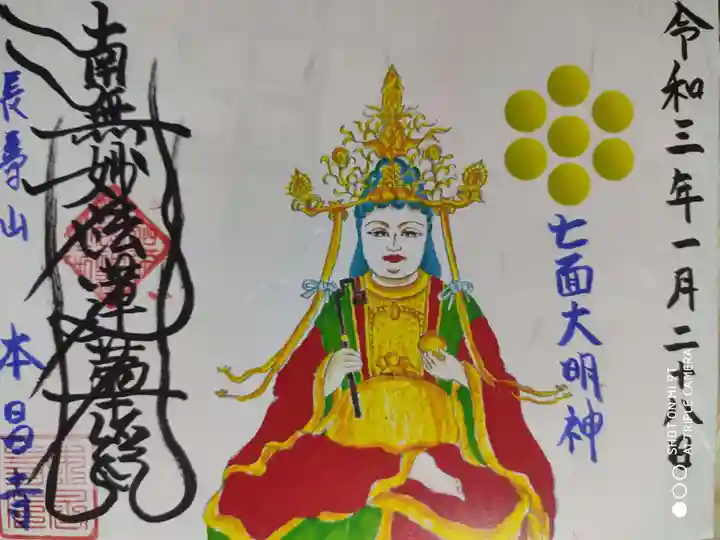 令和三年一月二十八日
七面大明神
南無妙法蓮華経
長壽山 本昌寺
SHOT ON MI 9T
AI TRIPLE CAMERA